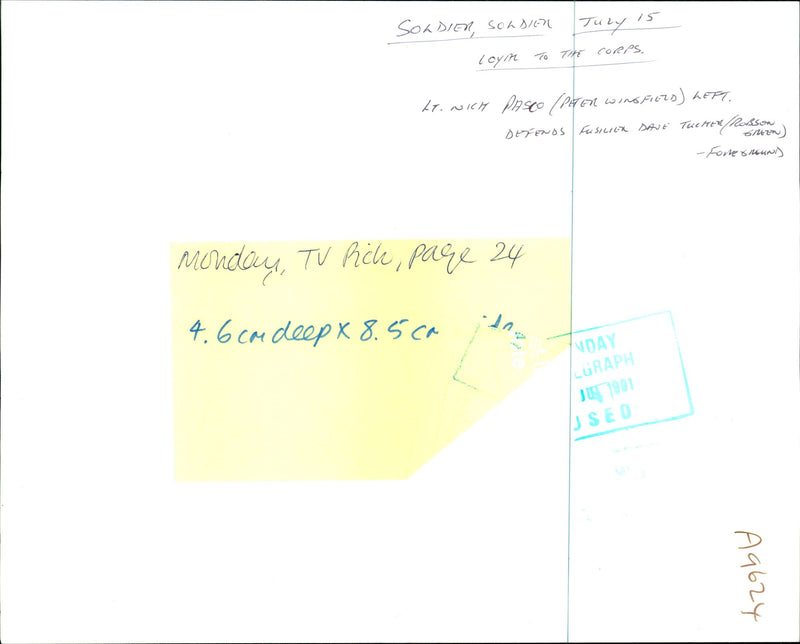 SOLDIER, SOLDIER July 15
LOYAL TO THE CORPS.
LT. NICK PASCO (PETER WINGFIELD) LEFT.
DEFENDS FUSILIER DAVE TUCKER (ROBSON
GREEN)
- FOREGROUND
Monday, TV Pick, page 24
4.6cm deep x 8.5cm
NDAY
EGRAPH
1991
USED
A9624